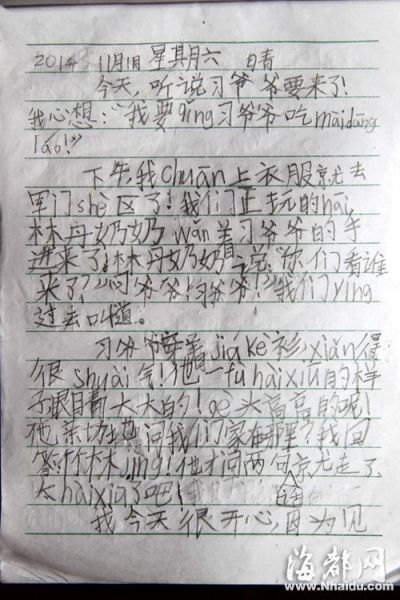 2014. 11月1日 星期六 晴
今天，听说习爷爷要来了！
我心想：“我要qǐng习爷爷吃màidāng
láo！”
下午我chuān上衣服就去
军门shè区了！我们正玩的hāi，
林丹奶奶wǎn羊习爷爷的手
进来了！林丹奶奶说：“你们看谁
来了？”“习爷爷！习爷爷！”我们yíng
过去叫道。
习爷爷穿着jiá kè衫，xiǎn得
很shuài气！他一fù hài xiū的样
子眼睛大大的！gè头高高的呢！
他亲切地问我们家在哪里？我回
答：竹林jìng！他才问两句就走了
太hài xiū了吧！
我今天很开心，因为见
海都网
www.Nhaidu.com